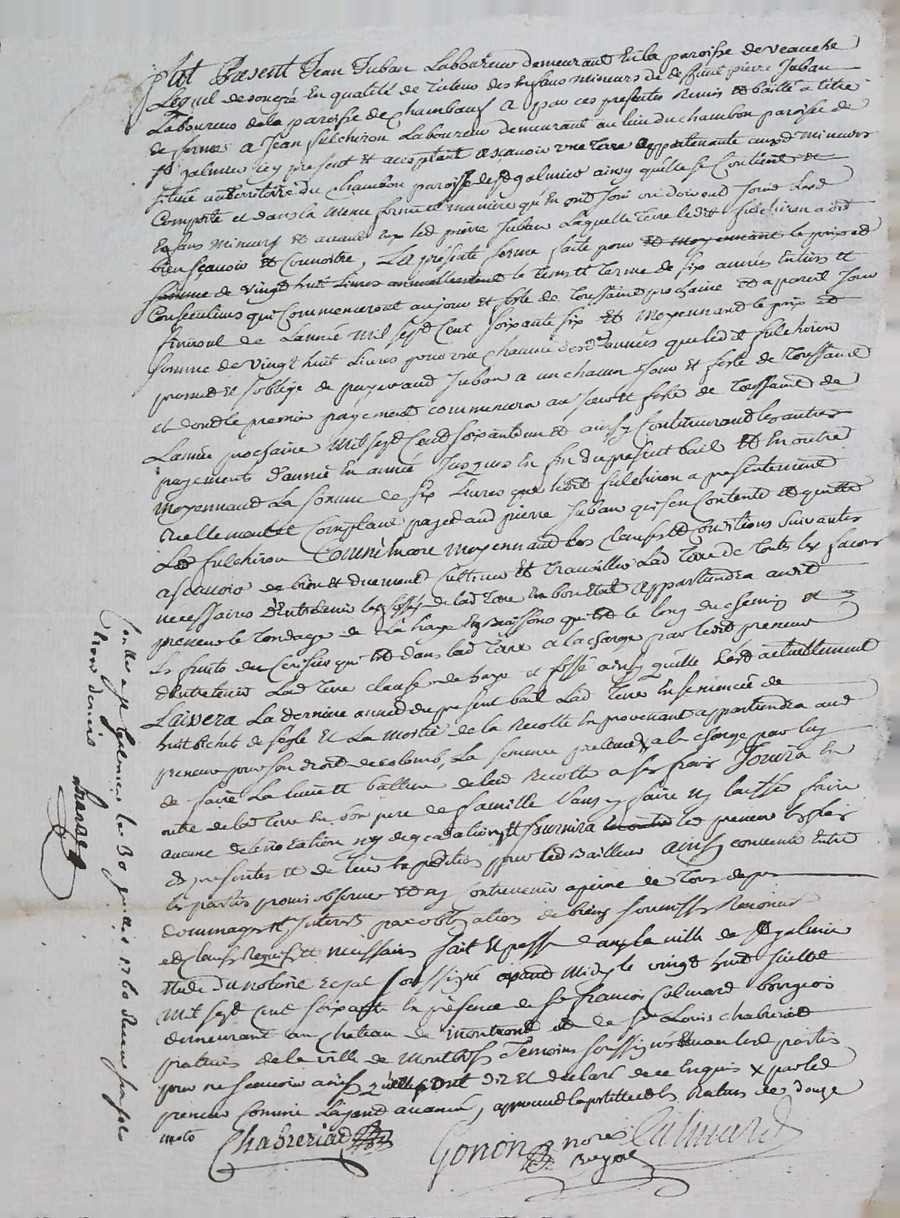 fut Présent Jean Juban Laboureur demeurant En la paroisse de veauche
Lequel de son gré En qualité de Tuteur des Enfans mineurs de deffunt pierre Juban
Laboureur de la paroisse de Chambœuf a par ces presentes Remis et baillé a titre
de ferme a Jean fulchiron Laboureur demeurant au lieu du chambon paroisse de
st galmier icy present et acceptant asçavoir une Terre appartenante auxd mineurs
située au territoire du Chambon paroisse de st galmier ainsy qu'elle se Contient et
Comporte et dans la meme forme et manière qu'En ont Joui ou doivent Jouir Lesd
Enfans Mineurs et avant eux led pierre Juban Laquelle Terre led fulchiron a dit
bien sçavoir et Connoitre, La présente ferme faite pour et moyennant le prix et
somme de vingt huit Livres annuellement le tems et terme de six années Entieres et
Consecutives qui Commenceront au jour et feste de Toussaint prochaine et a pareil Jour
finiront de L'année mil sept Cent soixante six et moyennant le prix et
somme de vingt huit Livres pour une chacune desd années que led fulchiron
promet et s'oblige de payer aud Juban a un chacun Jour et feste de Toussaint
et dont le premier payement commencera au Jour et feste de Toussaint de
L'année prochaine mil sept Cent soixante un et ainsy Continueront les autres
payements d'année En année Jusques En fin du present bail Et En outre
moyennant La somme de six Livres que led fulchiron a presentement
reellement et Comptant payé aud pierre Juban qui s'en Contente et quitte
Led fulchiron Comm Encore moyennant les Clauses et Conditions suivantes
asçavoir de bien et duement Cultiver et travailler Lad Terre de Toutes les façons
nécessaires d'Entretenir les fossés de lad Terre En bon état appartiendra aud
preneur le Tondage de La haye Et Buissons qui est le long du chemin et
les fruits du Cerisier qui est dans lad Terre a la charge par led preneur
d'entretenir Lad Terre Close de haye et fossé ainsy qu'elle L'est actuellement
Laissera La derniere année du present bail Lad Terre Ensemencée de
huit Bichets de segle Et La Moitié de la Recolte En provenant appartiendra aud
preneur pour son droit de colomb, La semence prelevée a la charge par luy
de faire La cueillette batture de lad Recolte a ses frais Jouira En
outre de lad Terre En bon pere de famille Sans y faire ny laisser faire
aucune deterioration ny degradation, et fournira led preneur les frais
des presentes et de leur Expedition pour led Bailleur ainsy convenu Entre
les parties promis observer et n'y Contrevenir a peine de Tous depens
dommages et Interets par obligation de biens soumission Renonciation
et Clauses Requises et necessaires fait Et passé dans la ville de st galmier
Etude du notaire Royal soussigné avant midy le vingt huit Juillet
mil sept cent soixante En présence de sr françois Calmard bourgeois
demeurant au Chateau de montrond et de sr Louis chabreriat
praticien de la ville de Montbrison Temoins soussignés non lesd parties
pour ne sçavoir ainsy qu'elles ont dit et declaré de ce Enquis x par led
preneur comme Layant avancé, approuvé la postille et les Ratures de douze
mots
Chabreriad
Gonon
nore
Royal
Calmard
Contrôlé a st galmier le 30 juillet 1760 Reçu
trois deniers